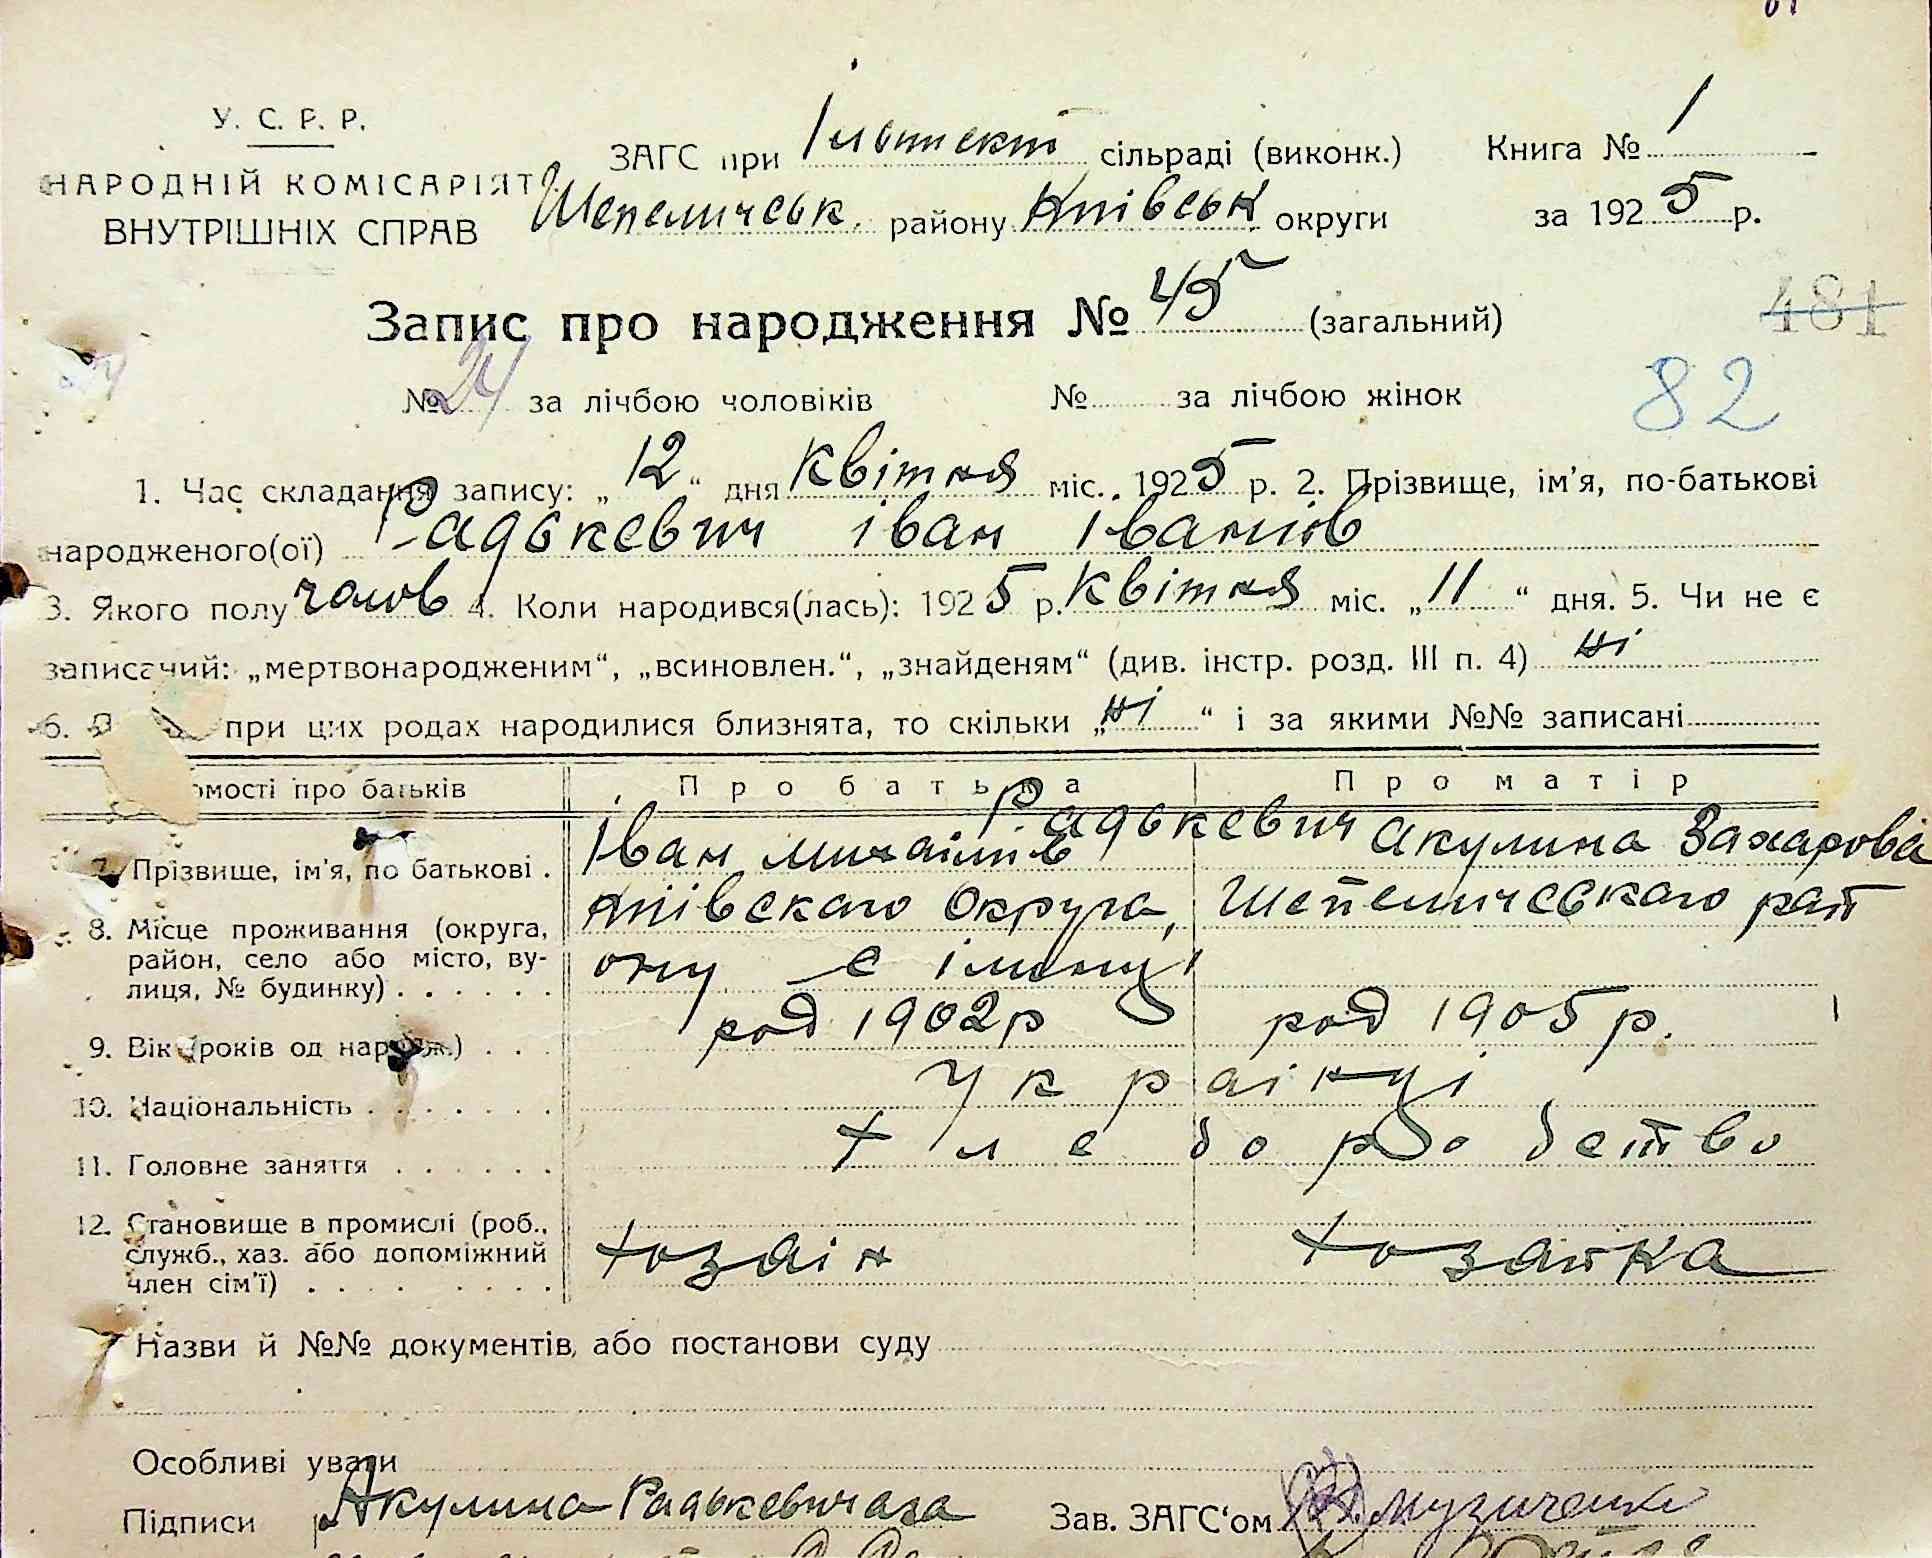 У. С. Р. Р.
НАРОДНІЙ КОМІСАРІЯТ
ВНУТРІШНІХ СПРАВ
ЗАГС при сільраді (виконк.) Книга № 1
Шепеличеськ. району Київськ округи за 1925 р.
Запис про народження № 45 (загальний)
481
№ 24 за лічбою чоловіків № за лічбою жінок
82
1. Час складання запису: „12“ дня Квітня міс. 1925 р. 2. Прізвище, ім'я, по-батькові
народженого(ої) Радькевич іван Іванів
3. Якого полу чолов 4. Коли народився(лась): 1925 р. Квітня міс. „11“ дня. 5. Чи не є
записачий: „мертвонародженим“, „всиновлен.“, „знайденям“ (див. інстр. розд. III п. 4) ні
6. при цих родах народилися близнята, то скільки „ні“ і за якими №№ записані
омості про батьків Про батька Про матір
7. Прізвище, ім'я, по батькові . Радькевич
Іван Михаілів Акулина Захарова
8. Місце проживання (округа, район, село або місто, вулиця, № будинку) . . . . . . Киівскаго Округа, Шепеличеського рай
ону с
9. Вік (років од народж.) . . . род 1902 р род 1905 р.
10. Національність . . . . . . . . Украінці
11. Головне заняття . . . . . . хлеборобство
12. Становище в промислі (роб., служб., хаз. або допоміжний член сім'ї) . . . . . . . . хозаін хозайка
Назви й №№ документів, або постанови суду
Особливі уваги
Підписи Акулина Зав. ЗАГС'ом Музиченко